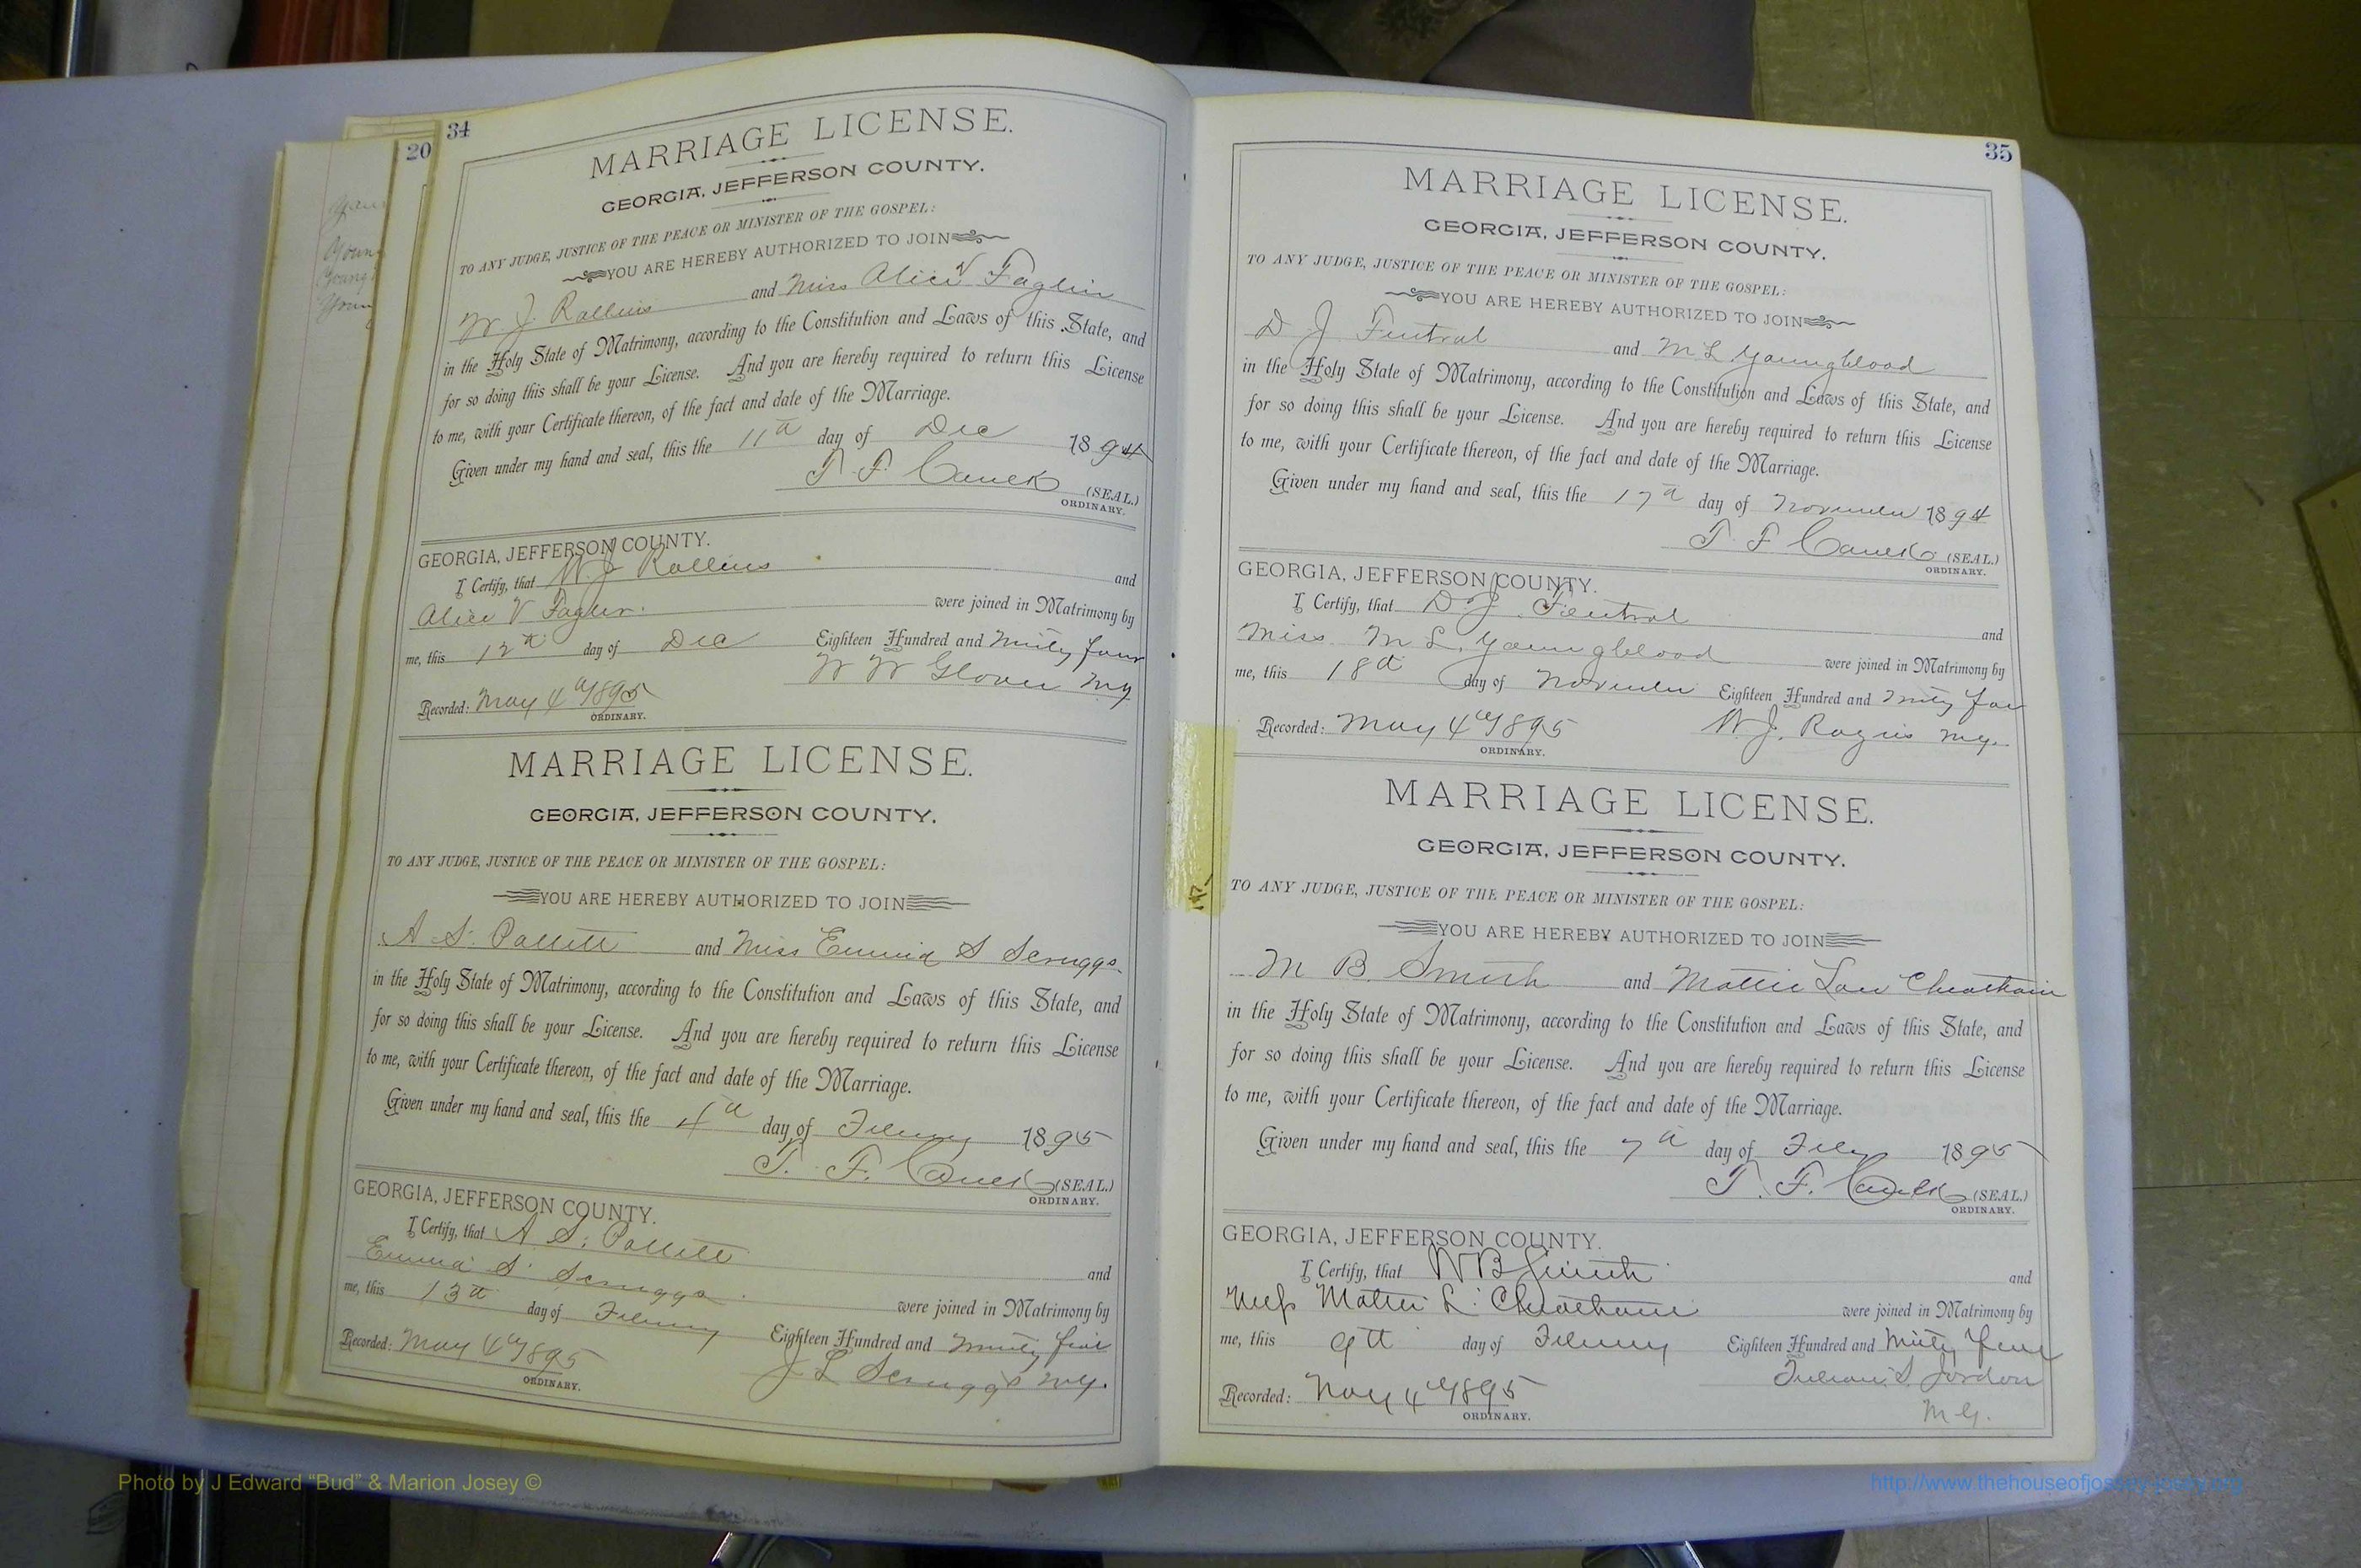 34
MARRIAGE LICENSE.
GEORGIA, JEFFERSON COUNTY.
TO ANY JUDGE, JUSTICE OF THE PEACE OR MINISTER OF THE GOSPEL:
YOU ARE HEREBY AUTHORIZED TO JOIN
W. J. Rollins and Miss Alice V
in the Holy State of Matrimony, according to the Constitution and Laws of this State, and
for so doing this shall be your License. And you are hereby required to return this License
to me, with your Certificate thereon, of the fact and date of the Marriage.
Given under my hand and seal, this the 11th day of Dec 1894
T. F. (SEAL.)
ORDINARY.
GEORGIA, JEFFERSON COUNTY.
I Certify, that W J Rollins and
Alice V were joined in Matrimony by
me, this 12th day of Dec Eighteen Hundred and Ninty four
W W Glover M.G
Recorded: May 4th 1895
ORDINARY.
MARRIAGE LICENSE.
GEORGIA, JEFFERSON COUNTY.
TO ANY JUDGE, JUSTICE OF THE PEACE OR MINISTER OF THE GOSPEL:
YOU ARE HEREBY AUTHORIZED TO JOIN
A. S. and Miss Emma S Scruggs
in the Holy State of Matrimony, according to the Constitution and Laws of this State, and
for so doing this shall be your License. And you are hereby required to return this License
to me, with your Certificate thereon, of the fact and date of the Marriage.
Given under my hand and seal, this the 4th day of 1895
T. F. (SEAL.)
ORDINARY.
GEORGIA, JEFFERSON COUNTY.
I Certify, that A. S. and
Emma S. Scruggs were joined in Matrimony by
me, this 13th day of Eighteen Hundred and Ninty five
J L Scruggs M.G.
Recorded: May 4th 1895
ORDINARY.
20
35
MARRIAGE LICENSE.
GEORGIA, JEFFERSON COUNTY.
TO ANY JUDGE, JUSTICE OF THE PEACE OR MINISTER OF THE GOSPEL:
YOU ARE HEREBY AUTHORIZED TO JOIN
D. J. and M L Youngblood
in the Holy State of Matrimony, according to the Constitution and Laws of this State, and
for so doing this shall be your License. And you are hereby required to return this License
to me, with your Certificate thereon, of the fact and date of the Marriage.
Given under my hand and seal, this the 17th day of November 1894
T F (SEAL.)
ORDINARY.
GEORGIA, JEFFERSON COUNTY.
I Certify, that D. J. and
Miss M L. Youngblood were joined in Matrimony by
me, this 18th day of November Eighteen Hundred and Ninty four
W. J. M.G.
Recorded: May 4th 1895
ORDINARY.
MARRIAGE LICENSE.
GEORGIA, JEFFERSON COUNTY.
TO ANY JUDGE, JUSTICE OF THE PEACE OR MINISTER OF THE GOSPEL:
YOU ARE HEREBY AUTHORIZED TO JOIN
M B. Smith and Mattie Lou Cheatham
in the Holy State of Matrimony, according to the Constitution and Laws of this State, and
for so doing this shall be your License. And you are hereby required to return this License
to me, with your Certificate thereon, of the fact and date of the Marriage.
Given under my hand and seal, this the 7th day of Feby 1895
T. F. (SEAL.)
ORDINARY.
GEORGIA, JEFFERSON COUNTY.
I Certify, that W B Smith and
Miss Mattie L. Cheatham were joined in Matrimony by
me, this 9th day of Eighteen Hundred and Ninty five
S. Jordon
M.G.
Recorded: May 4th 1895
ORDINARY.
Photo by J Edward “Bud” & Marion Josey ©
http://www.thehouseofjossey-josey.org